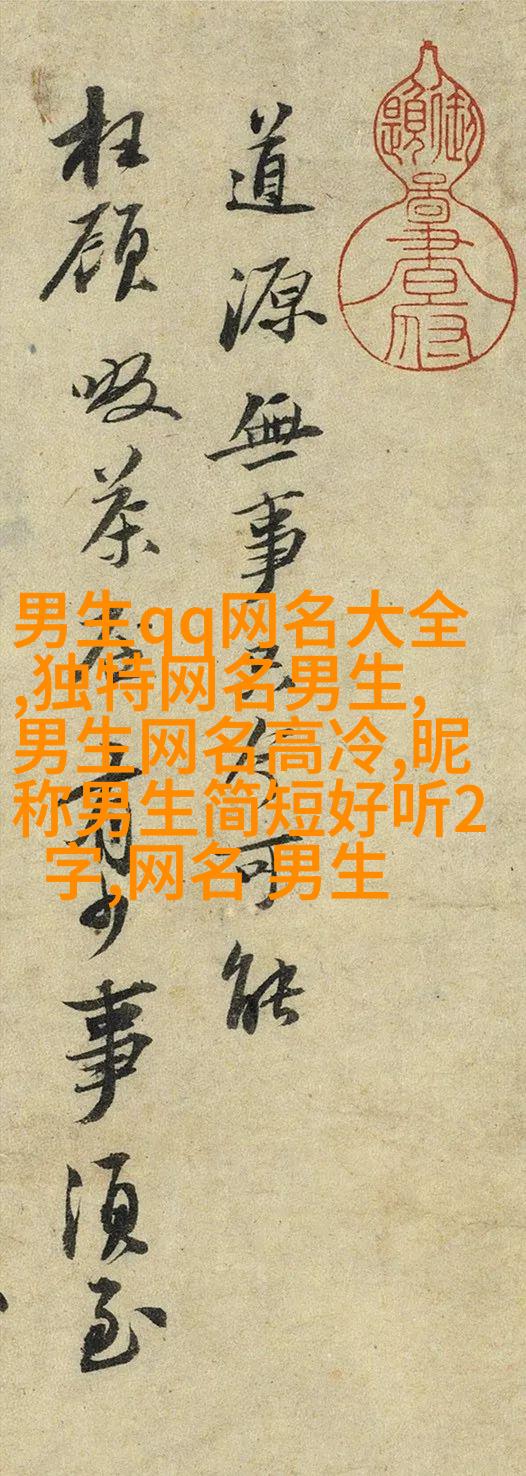 道源無事只今可能
枉顧啜茶否有少事須至
男生qq网名大全
,独特网名男生,
男生网名高冷,昵
称男生简短好听2
字,网名 男生